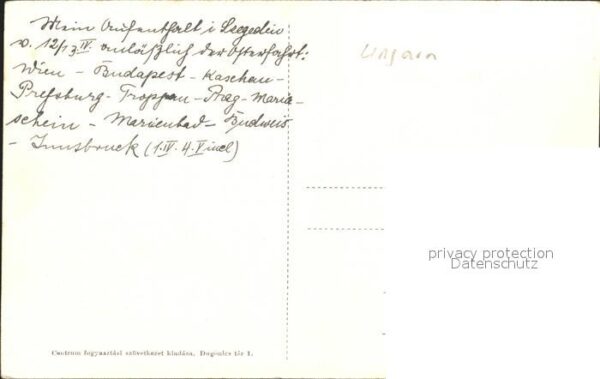 Mein Aufenthalt i Szegedin
v. 12/13 IV. anläßlich der Osterfahrt:
Wien - Budapest - Kaschau -
Preßburg - Troppau - Prag - Maria-
schein - Marienbad - Budweis
- Innsbruck (1.IV. 4.V incl)
Ungarn
privacy protection
Datenschutz
Centrum fogyasztási szövetkezet kiadása, Dugonics tér 1.